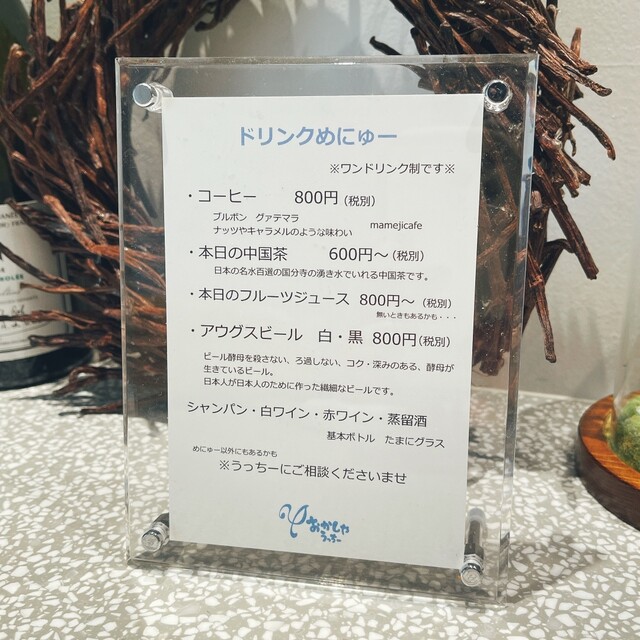 ドリンクめにゅー
※ワンドリンク制です※
・コーヒー 800円(税別)
ブルボン グァテマラ
ナッツやキャラメルのような味わい mamejicafe
・本日の中国茶 600円～(税別)
日本の名水百選の国分寺の湧き水でいれる中国茶です。
・本日のフルーツジュース 800円～(税別)
無いときもあるかも・・・
・アウグスビール 白・黒 800円(税別)
ビール酵母を殺さない、ろ過しない、コク・深みのある、酵母が
生きているビール。
日本人が日本人のために作った繊細なビールです。
シャンパン・白ワイン・赤ワイン・蒸留酒
基本ボトル たまにグラス
めにゅー以外にもあるかも
※うっちーにご相談くださいませ
おかしや
うっちー